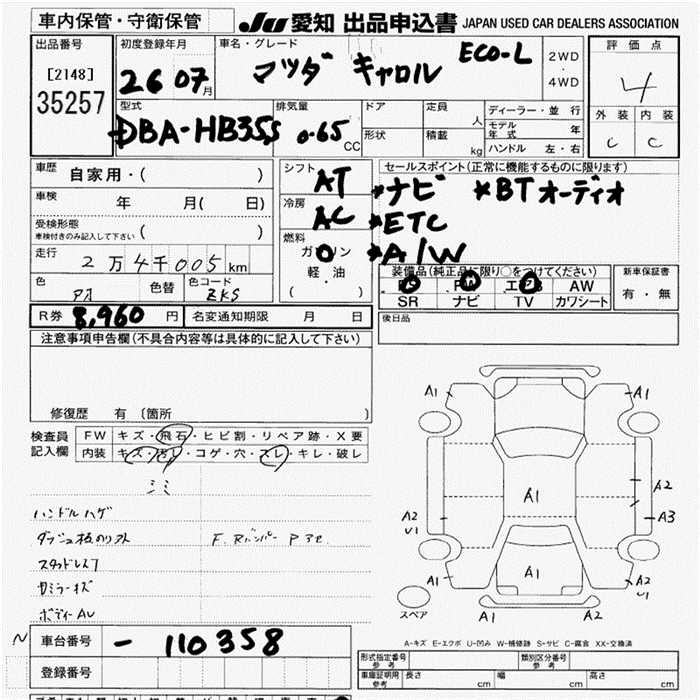 車内保管・守衛保管 JU 愛知 出品申込書 JAPAN USED CAR DEALERS ASSOCIATION
出品番号 初度登録年月 車名・グレード 評価点
[2148] 26 07月 マツダ キャロル ECO-L 2WD・4WD 4
35257
型式 排気量 ドア 定員 人 ディーラー・並行 外装 内装
DBA-HB35S 0.65 CC 形状 積載 kg モデル年式 年 C C
ハンドル 左・右
車歴 自家用・( ) シフト AT セールスポイント(正常に機能するものに限ります)
*ナビ *BTオーディオ
車検 年 月( 日) 冷房 AC *ETC
受検形態 ( )
車検付きのみ記入して下さい
燃料 ガソリン *A/W
走行 2万4千005km 軽・油
( )
装備品(純正品に限り○をつけてください) 新車保証書
PS PW エアB AW 有・無
SR ナビ TV カワシート
色 色替 色コード
ZKS
R券 8,960円 名変通知期限 月 日 後日品
注意事項申告欄(不具合内容等は具体的に記入して下さい)
修復歴 有 〔箇所 〕
検査員 FW キズ・飛石・ヒビ割・リペア跡・X要
記入欄 内装 キズ・汚レ・コゲ・穴・スレ・キレ・破レ
シミ
ハンドルハゲ
F. Rバンパー
ボディーAU
A1 A1
A1 A2
A2 A3
U1
A1 A1 A2
U1
スペア A1 A2
A-キズ E-エクボ U-凹み W-補修跡 S-サビ C-腐食 XX-交換済
N 車台番号 - 110358
登録番号
形式指定番号 参考 類別区分番号 参考
車庫証明用 参考 長さ cm 幅 cm 高さ cm